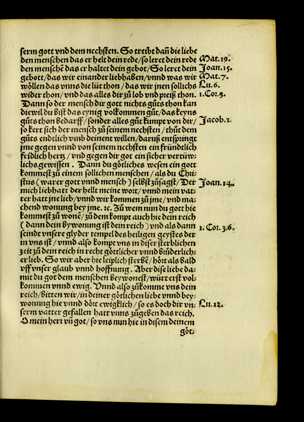 serm gott vnd dem nechsten. So treibe dañ die liebe
den menschen das er helt dein rede/ so leret dein rede
den menschẽ das er haltet dein gebot/ So leret dein
gebott/ das wir einander liebhaben/ vnnd was wir
wöllen das vnns die lüt thon/ das wir jnen sollichs
wider thon/ vnd das alles dir zů lob vnd preiß thon.
Dann so der mensch dir gott nichts gůts thon kan
diewil du bist das eynig volkommen gůt/ das keyns
gůts thon bedarff/ sonder alles gůt kũmpt von dir/
so kert sich der mensch zů seinem nechsten/ thůt dem
gůts endtlich vnnd deinent willen/ daruß entspringt
jme gegen vnnd von seinem nechsten ein fründtlich
fridlich hertz/ vnd gegen dir got ein sicher vertrüw-
lichs gewissen. Dann du götliches wesen ein gott
kommest zů einem sollichen menschen/ als du Chri-
stus (warer gott vnnd mensch) selbst zůsagst/ Der
mich liebhatt der hellt meine wort/ vnnd mein vat-
ter hatt jne lieb/ vnnd wir kommen zů jme/ vnd ma-
chend wonung bey jme. ꝛc. Zů wem nun du gott hie
kommest zů wonẽ/ zů dem kompt auch hie dein reich
(dann dein bywonung ist dein reich) vnd als dann
seindt vnsere glyder tempel des heiligen geystes der
in vns ist/ vnnd also kompt vns in diser sterblichen
zeit zů dem reich in recht götlicher vnnd brüderlich-
er lieb. So wir aber hie leiplich sterbẽ/ hört als bald
vff vnser glaub vnnd hoffnung. Aber dise liebe da-
mit du got dem menschen beywonest/ würt erst vol-
kommen vnnd ewig. Vnnd also zůkomme vns dein
reich/ bitten wir/ in deiner götlichen liebe vnnd bey-
wonung hie vnnd dört ewigklich/ so es doch dir vn-
serm vatter gefallen hatt vnns zůgeben das reich.
O mein herr vñ got/ so vns nun hie in disem deinem
göt-
Mat. 19.
Joan. 15.
Mat. 7.
Lu. 6.
1. Cor. 9.
Jacob. 1.
Joan. 14.
1. Cor. 3. 6.
Lu. 12.